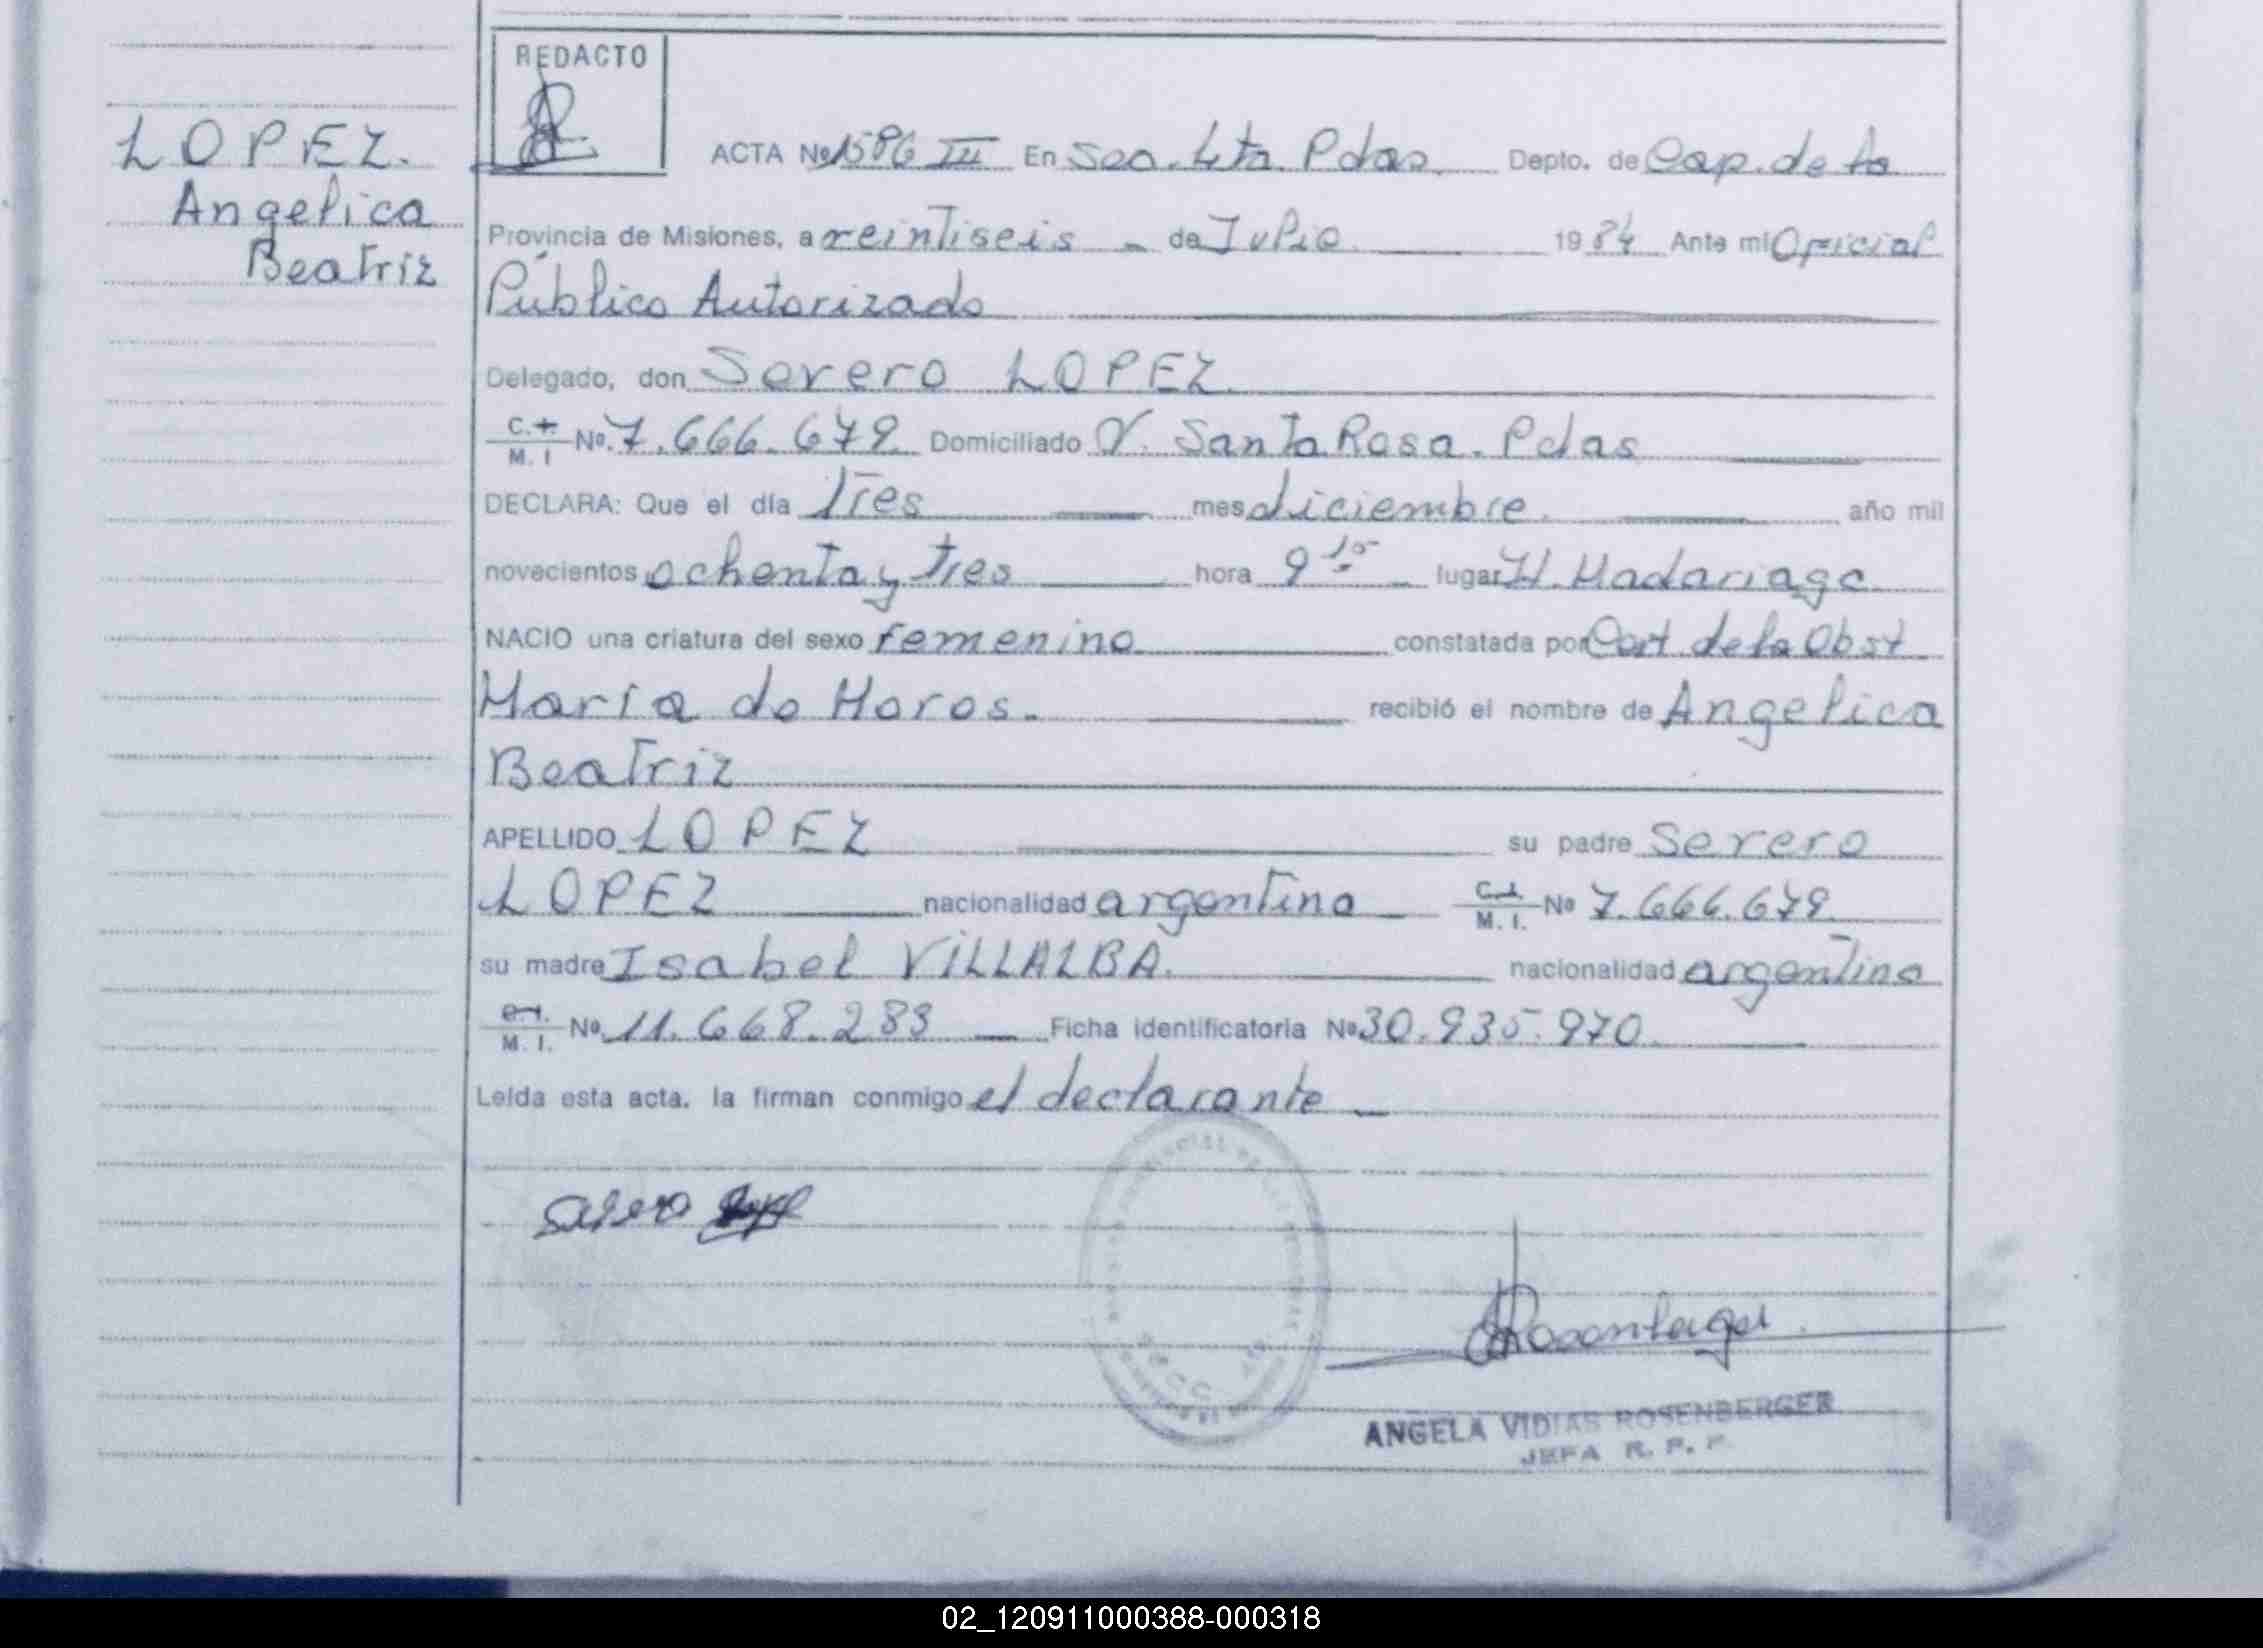 REDACTO
LOPEZ.
Angelica
Beatriz
ACTA Nº 1586 III En Sec. 4ta Pdas. Depto. de Cap. de la
Provincia de Misiones, a veintiseis - de Julio 19 84 Ante mi Oficial
Público Autorizado
Delegado, don Severo LOPEZ.
C. I. M. I Nº. 7.666.679. Domiciliado V. Santa Rosa. Pdas
DECLARA: Que el día Tres mes diciembre. año mil
novecientos ochenta y tres hora 9 15 lugar H. Madariaga
NACIO una criatura del sexo femenino constatada por Cert. de la Obst
María do Horos. recibió el nombre de Angelica
Beatriz
APELLIDO LOPEZ su padre Severo
LOPEZ nacionalidad argentino C. I. M. I. Nº 7.666.679.
su madre Isabel VILLALBA. nacionalidad argentina
C. I. M. I. Nº. 11.668.283 Ficha identificatoria Nº 30.935.970.
Leída esta acta. la firman conmigo el declarante
Severo
Rosenberger
ANGELA VIDIAS ROSENBERGER
JEFA R. P. P
02_120911000388-000318